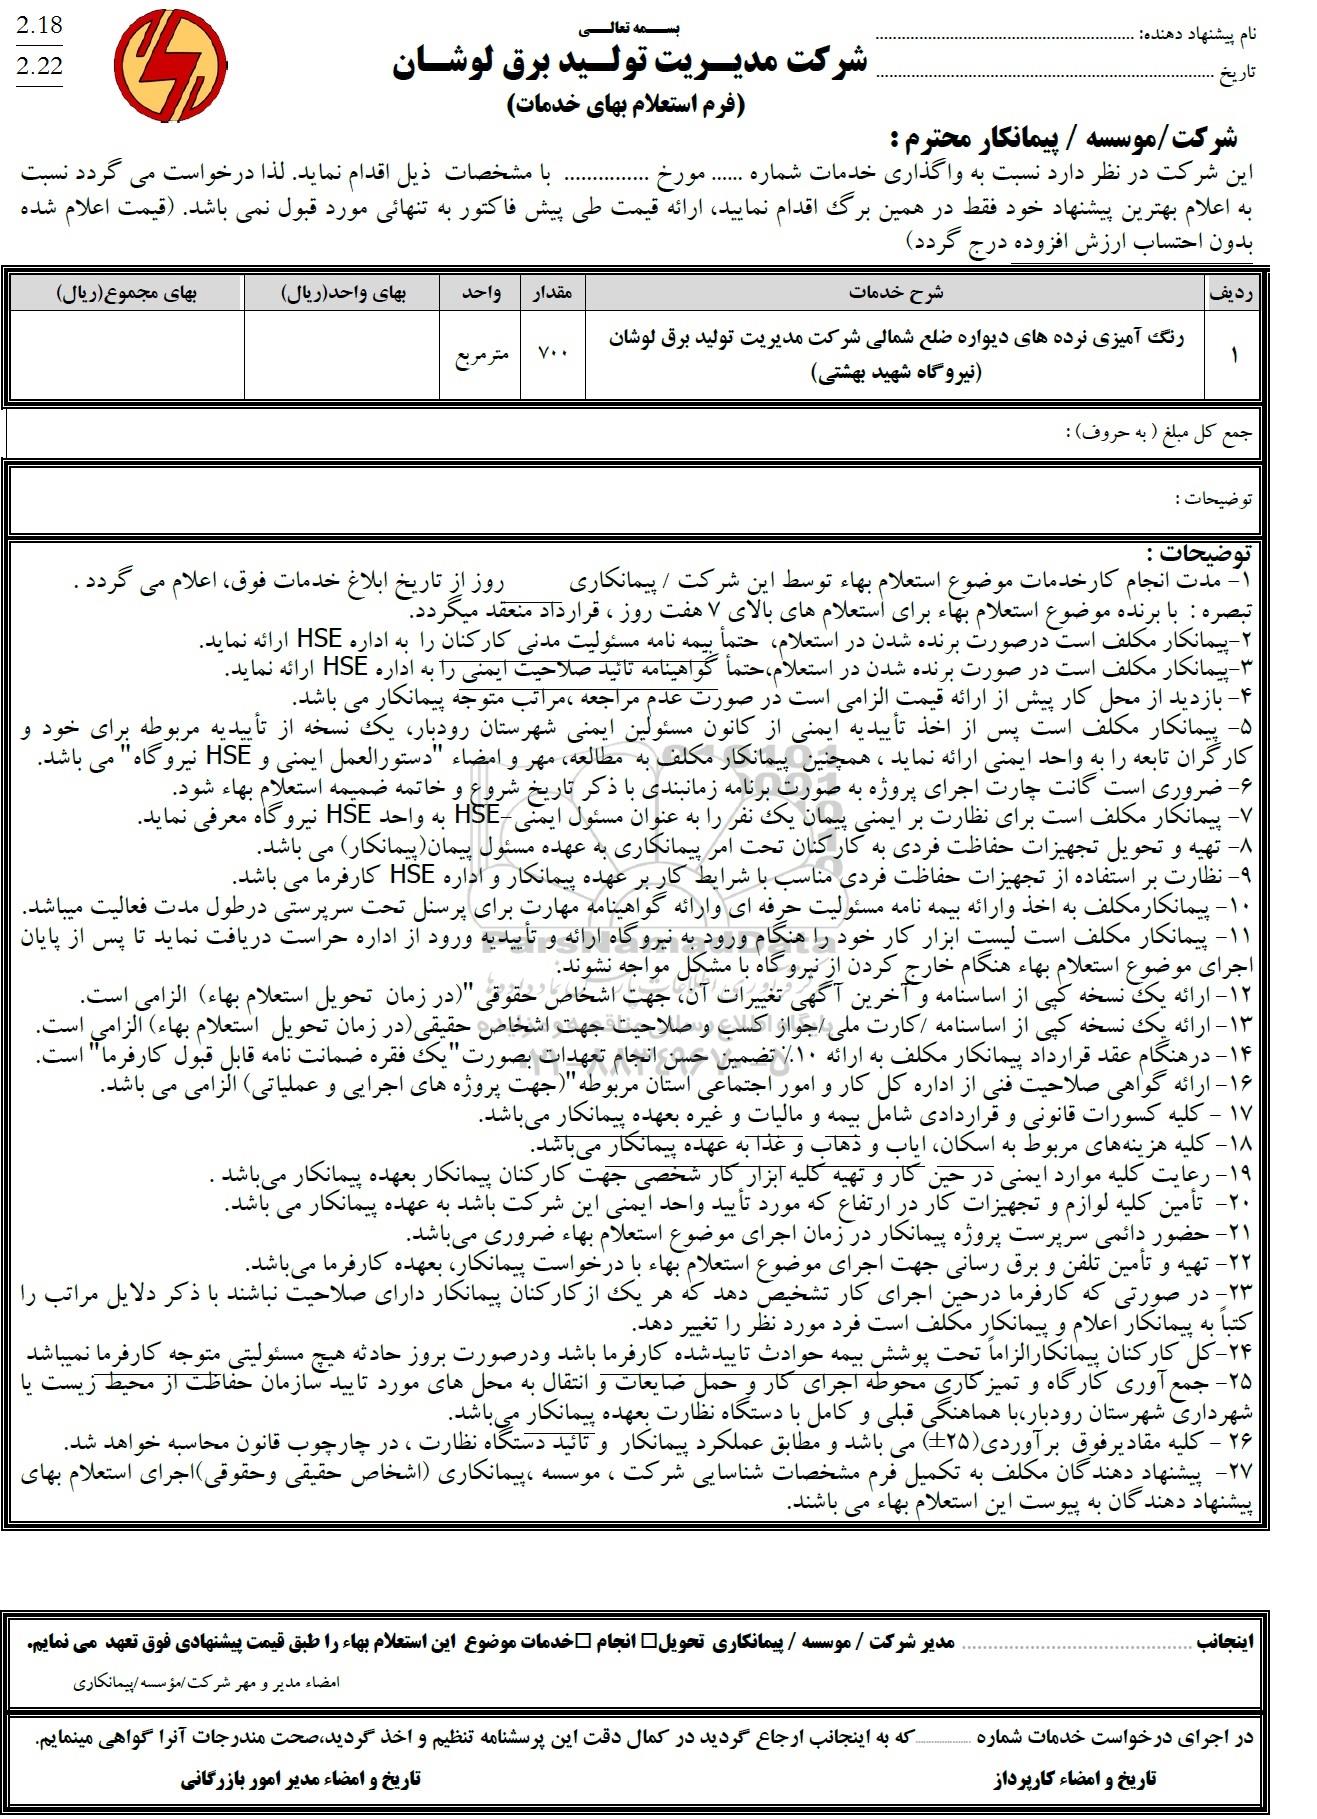 2.18
2.22
بســـمه تعالـــی
شرکت مدیـــریت تولـــید برق لوشـــان
(فرم استعلام بهای خدمات)
نام پیشنهاد دهنده: ............................................................
تاریخ ..............................................................................
شرکت/موسسه / پیمانکار محترم :
این شرکت در نظر دارد نسبت به واگذاری خدمات شماره ...... مورخ ............... با مشخصات ذیل اقدام نماید. لذا درخواست می گردد نسبت
به اعلام بهترین پیشنهاد خود فقط در همین برگ اقدام نمایید، ارائه قیمت طی پیش فاکتور به تنهائی مورد قبول نمی باشد. (قیمت اعلام شده
بدون احتساب ارزش افزوده درج گردد)
ردیف شرح خدمات مقدار واحد بهای واحد(ریال) بهای مجموع(ریال)
۱ رنگ آمیزی نرده های دیواره ضلع شمالی شرکت مدیریت تولید برق لوشان ۷۰۰ مترمربع
(نیروگاه شهید بهشتی)
جمع کل مبلغ ( به حروف) :
توضیحات :
توضیحات :
۱- مدت انجام کارخدمات موضوع استعلام بهاء توسط این شرکت / پیمانکاری ____ روز از تاریخ ابلاغ خدمات فوق، اعلام می گردد .
تبصره : با برنده موضوع استعلام بهاء برای استعلام های بالای ۷ هفت روز ، قرارداد منعقد میگردد.
۲-پیمانکار مکلف است درصورت برنده شدن در استعلام، حتمأ بیمه نامه مسئولیت مدنی کارکنان را به اداره HSE ارائه نماید.
۳-پیمانکار مکلف است در صورت برنده شدن در استعلام،حتمأ گواهینامه تائید صلاحیت ایمنی را به اداره HSE ارائه نماید.
۴- بازدید از محل کار پیش از ارائه قیمت الزامی است در صورت عدم مراجعه ،مراتب متوجه پیمانکار می باشد.
۵- پیمانکار مکلف است پس از اخذ تأییدیه ایمنی از کانون مسئولین ایمنی شهرستان رودبار، یک نسخه از تأییدیه مربوطه برای خود و
کارگران تابعه را به واحد ایمنی ارائه نماید ، همچنین پیمانکار مکلف به مطالعه، مهر و امضاء "دستورالعمل ایمنی و HSE نیروگاه" می باشد.
۶- ضروری است گانت چارت اجرای پروژه به صورت برنامه زمانبندی با ذکر تاریخ شروع و خاتمه ضمیمه استعلام بهاء شود.
۷- پیمانکار مکلف است برای نظارت بر ایمنی پیمان یک نفر را به عنوان مسئول ایمنی-HSE به واحد HSE نیروگاه معرفی نماید.
۸- تهیه و تحویل تجهیزات حفاظت فردی به کارکنان تحت امر پیمانکاری به عهده مسئول پیمان(پیمانکار) می باشد.
۹- نظارت بر استفاده از تجهیزات حفاظت فردی مناسب با شرایط کار بر عهده پیمانکار و اداره HSE کارفرما می باشد.
۱۰- پیمانکارمکلف به اخذ وارائه بیمه نامه مسئولیت حرفه ای وارائه گواهینامه مهارت برای پرسنل تحت سرپرستی درطول مدت فعالیت میباشد.
۱۱- پیمانکار مکلف است لیست ابزار کار خود را هنگام ورود به نیروگاه ارائه و تأییدیه ورود از اداره حراست دریافت نماید تا پس از پایان
اجرای موضوع استعلام بهاء هنگام خارج کردن از نیروگاه با مشکل مواجه نشوند.
۱۲- ارائه یک نسخه کپی از اساسنامه و آخرین آگهی تغییرات آن، جهت اشخاص حقوقی "(در زمان تحویل استعلام بهاء) الزامی است.
۱۳- ارائه یک نسخه کپی از اساسنامه /کارت ملی/جواز کسب و صلاحیت جهت اشخاص حقیقی(در زمان تحویل استعلام بهاء) الزامی است.
۱۴- درهنگام عقد قرارداد پیمانکار مکلف به ارائه ۱۰٪ تضمین حسن انجام تعهدات بصورت"یک فقره ضمانت نامه قابل قبول کارفرما" است.
۱۶- ارائه گواهی صلاحیت فنی از اداره کل کار و امور اجتماعی استان مربوطه"(جهت پروژه های اجرایی و عملیاتی) الزامی می باشد.
۱۷ - کلیه کسورات قانونی و قراردادی شامل بیمه و مالیات و غیره بعهده پیمانکار می‌باشد.
۱۸- کلیه هزینه‌های مربوط به اسکان، ایاب و ذهاب و غذا به عهده پیمانکار می‌باشد.
۱۹- رعایت کلیه موارد ایمنی در حین کار و تهیه کلیه ابزار کار شخصی جهت کارکنان پیمانکار بعهده پیمانکار می‌باشد .
۲۰- تأمین کلیه لوازم و تجهیزات کار در ارتفاع که مورد تأیید واحد ایمنی این شرکت باشد به عهده پیمانکار می باشد.
۲۱- حضور دائمی سرپرست پروژه پیمانکار در زمان اجرای موضوع استعلام بهاء ضروری می‌باشد.
۲۲- تهیه و تأمین تلفن و برق رسانی جهت اجرای موضوع استعلام بهاء با درخواست پیمانکار، بعهده کارفرما می‌باشد.
۲۳- در صورتی که کارفرما درحین اجرای کار تشخیص دهد که هر یک ازکارکنان پیمانکار دارای صلاحیت نباشند با ذکر دلایل مراتب را
کتباً به پیمانکار اعلام و پیمانکار مکلف است فرد مورد نظر را تغییر دهد.
۲۴-کل کارکنان پیمانکارالزاماً تحت پوشش بیمه حوادث تاییدشده کارفرما باشد ودرصورت بروز حادثه هیچ مسئولیتی متوجه کارفرما نمیباشد
۲۵- جمع‌آوری کارگاه و تمیزکاری محوطه اجرای کار و حمل ضایعات و انتقال به محل های مورد تایید سازمان حفاظت از محیط زیست یا
شهرداری شهرستان رودبار،با هماهنگی قبلی و کامل با دستگاه نظارت بعهده پیمانکار می‌باشد.
۲۶ - کلیه مقادیرفوق برآوردی(۲۵±) می باشد و مطابق عملکرد پیمانکار و تائید دستگاه نظارت ، در چارچوب قانون محاسبه خواهد شد.
۲۷- پیشنهاد دهندگان مکلف به تکمیل فرم مشخصات شناسایی شرکت ، موسسه ،پیمانکاری (اشخاص حقیقی وحقوقی)اجرای استعلام بهای
پیشنهاد دهندگان به پیوست این استعلام بهاء می باشند.
ParsNamadData
پایگاه اطلاع رسانی مناقصه و مزایده
۰۲۱-۸۸۳۴۹۶۷۰-۵
اینجانب ........................................ مدیر شرکت / موسسه / پیمانکاری تحویل□ انجام □خدمات موضوع این استعلام بهاء را طبق قیمت پیشنهادی فوق تعهد می نمایم.
امضاء مدیر و مهر شرکت/مؤسسه/پیمانکاری
در اجرای درخواست خدمات شماره ................ که به اینجانب ارجاع گردید در کمال دقت این پرسشنامه تنظیم و اخذ گردید،صحت مندرجات آنرا گواهی مینمایم.
تاریخ و امضاء کارپرداز تاریخ و امضاء مدیر امور بازرگانی